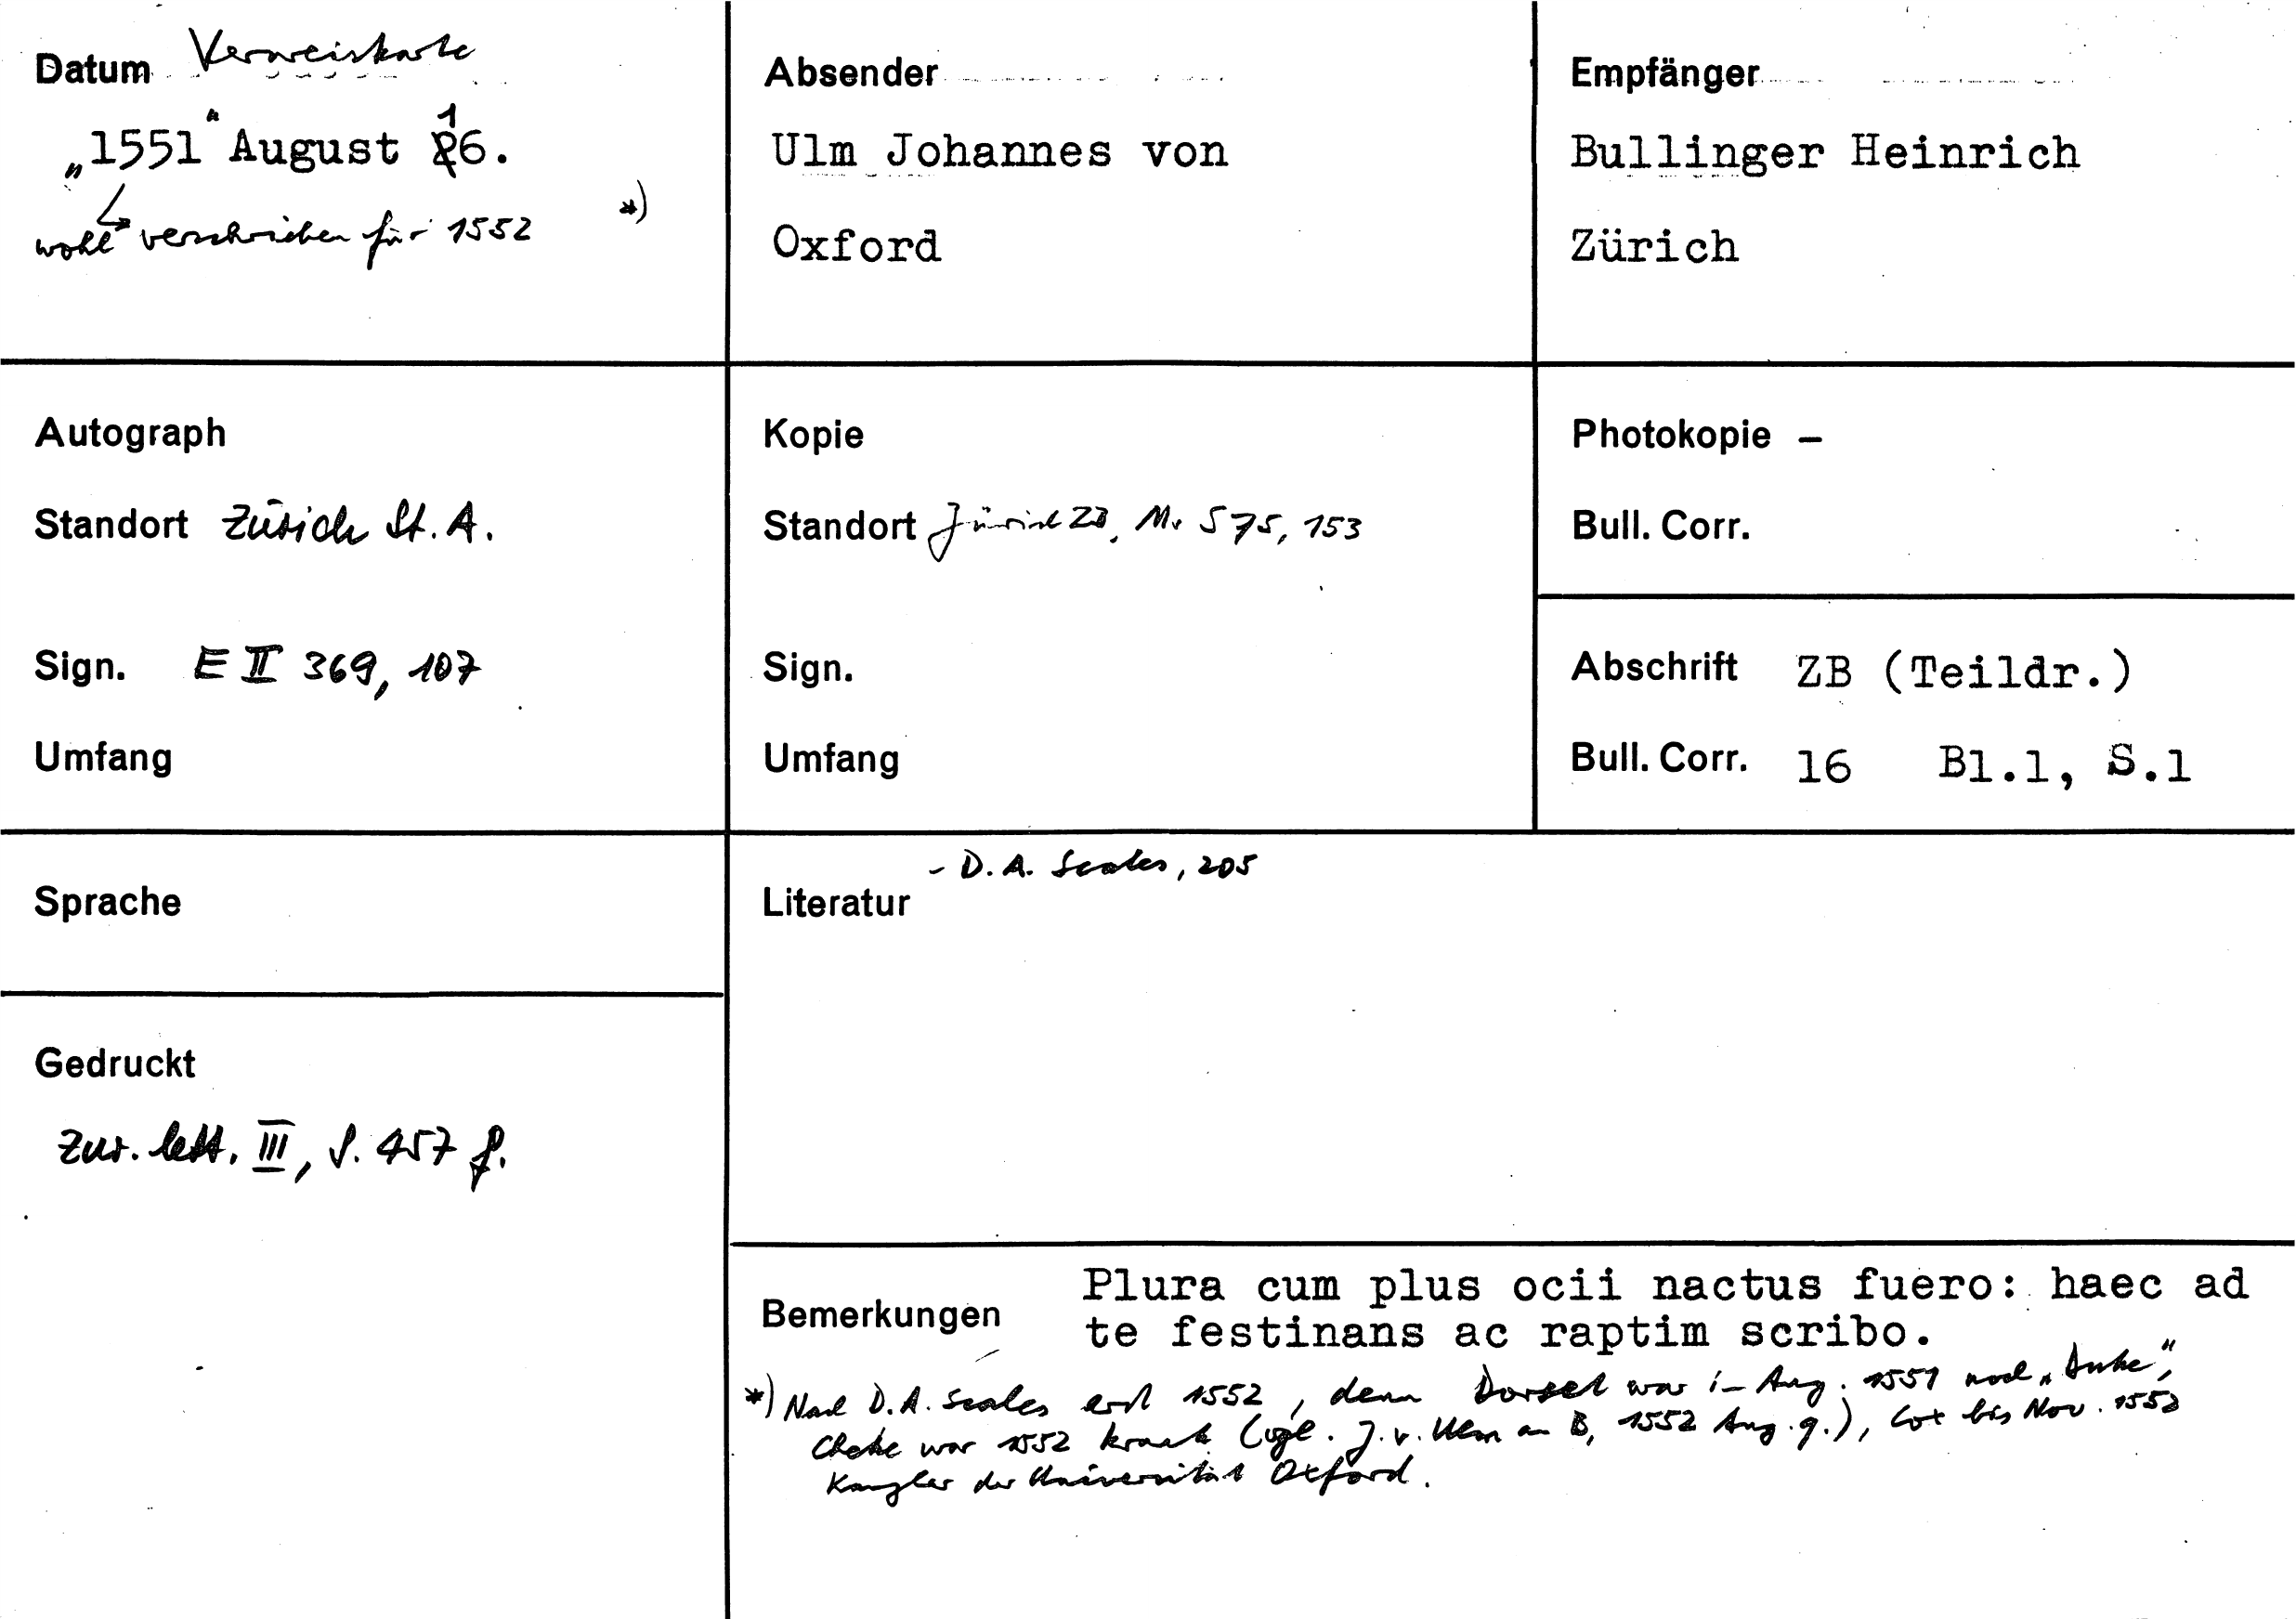 Datum Verweiskarte
„1551" August 16.
wohl verschrieben für 1552 *)
Absender
Ulm Johannes von
Oxford
Empfänger
Bullinger Heinrich
Zürich
Autograph
Standort Zürich St. A.
Sign. E II 369, 107
Umfang
Kopie
Standort Zürich ZB, Ms S 75, 153
Sign.
Umfang
Photokopie –
Bull. Corr.
Abschrift ZB (Teildr.)
Bull. Corr. 16 Bl.1, S.1
Sprache
Literatur - D. A. Scales, 205
Gedruckt
Zur. lett. III, S. 457 f.
Bemerkungen Plura cum plus ocii nactus fuero: haec ad
te festinans ac raptim scribo.
*) Nach D. A. Scales erst 1552, denn Dorset war im Aug. 1551 noch „Duke",
Cheke war 1552 krank (vgl. J. v. Ulm an B, 1552 Aug. 9.), Cox bis Nov. 1552
Kanzler der Universität Oxford.